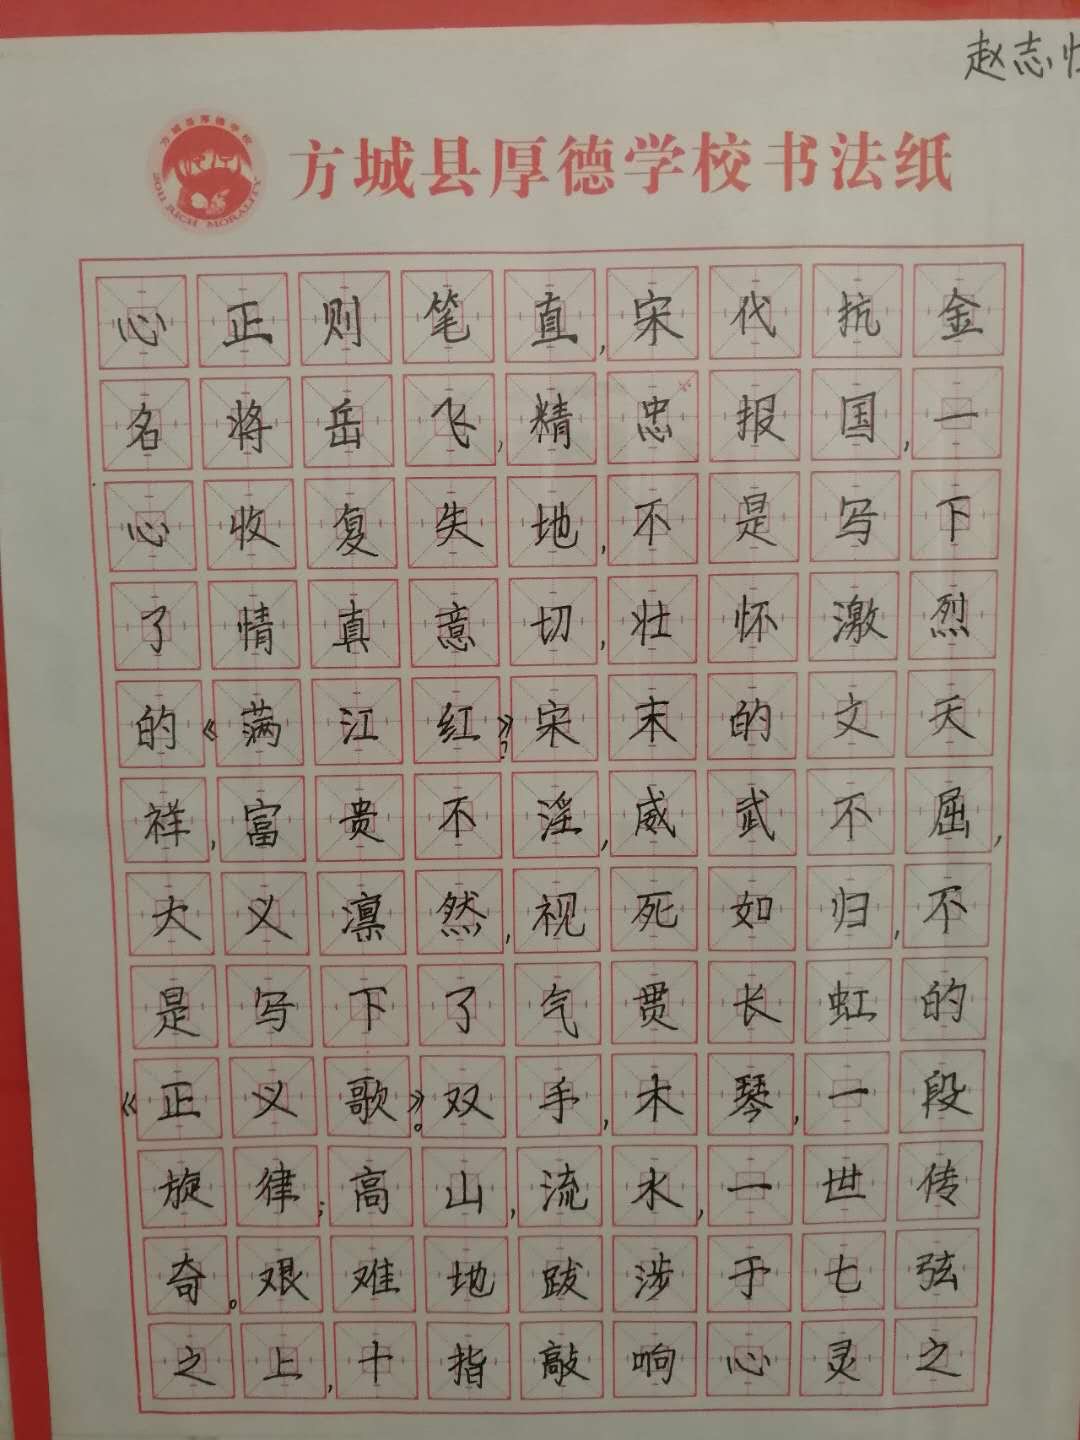 赵志
方城县厚德学校
2011 RICH MORALITY
方城县厚德学校书法纸
心正则笔直,宋代抗金
名将岳飞,精忠报国,一
心收复失地,不是写下
了情真意切,壮怀激烈
的《满江红》?宋末的文天
祥,富贵不淫,威武不屈,
大义凛然,视死如归,不
是写下了气贯长虹的
《正义歌》。双手,木琴,一段
旋律;高山,流水,一世传
奇。艰难地跋涉于七弦
之上,十指敲响心灵之